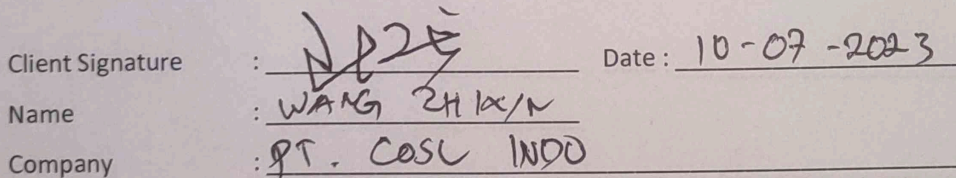 Client Signature : Date : 10-07-2023
Name : WANG ZHIXIN
Company : PT. COSL INDO